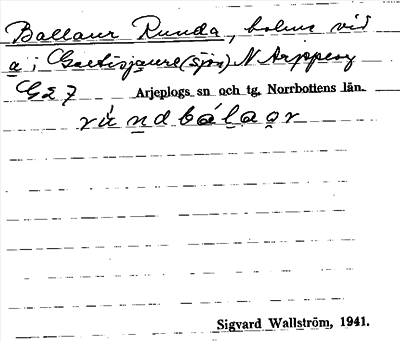 Ballaur Runda, holme vid
a; Gaetisjaure (sjö) N Arppesq
G27 Arjeplogs sn och tg. Norrbottens län.
rúndbálaor
Sigvard Wallström, 1941.